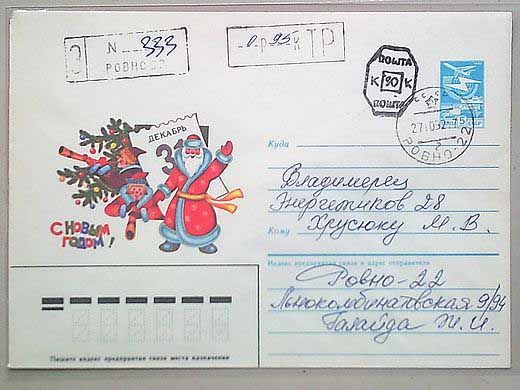 З N 333
РОВНО-22
0 р 95 к ТР
ПОШТА
К 90 К
ПОШТА
27 10 92
РОВНО-22
5
ДЕКАБРЬ
31
С НОВЫМ
ГОДОМ!
Куда
Владимерец
Энергетиков 28
Кому Хрусюку М. В.
Индекс предприятия связи и адрес отправителя
Ровно-22
Льнокомбинатовская 9/94
Галайда Н. И.
Пишите индекс предприятия связи места назначения